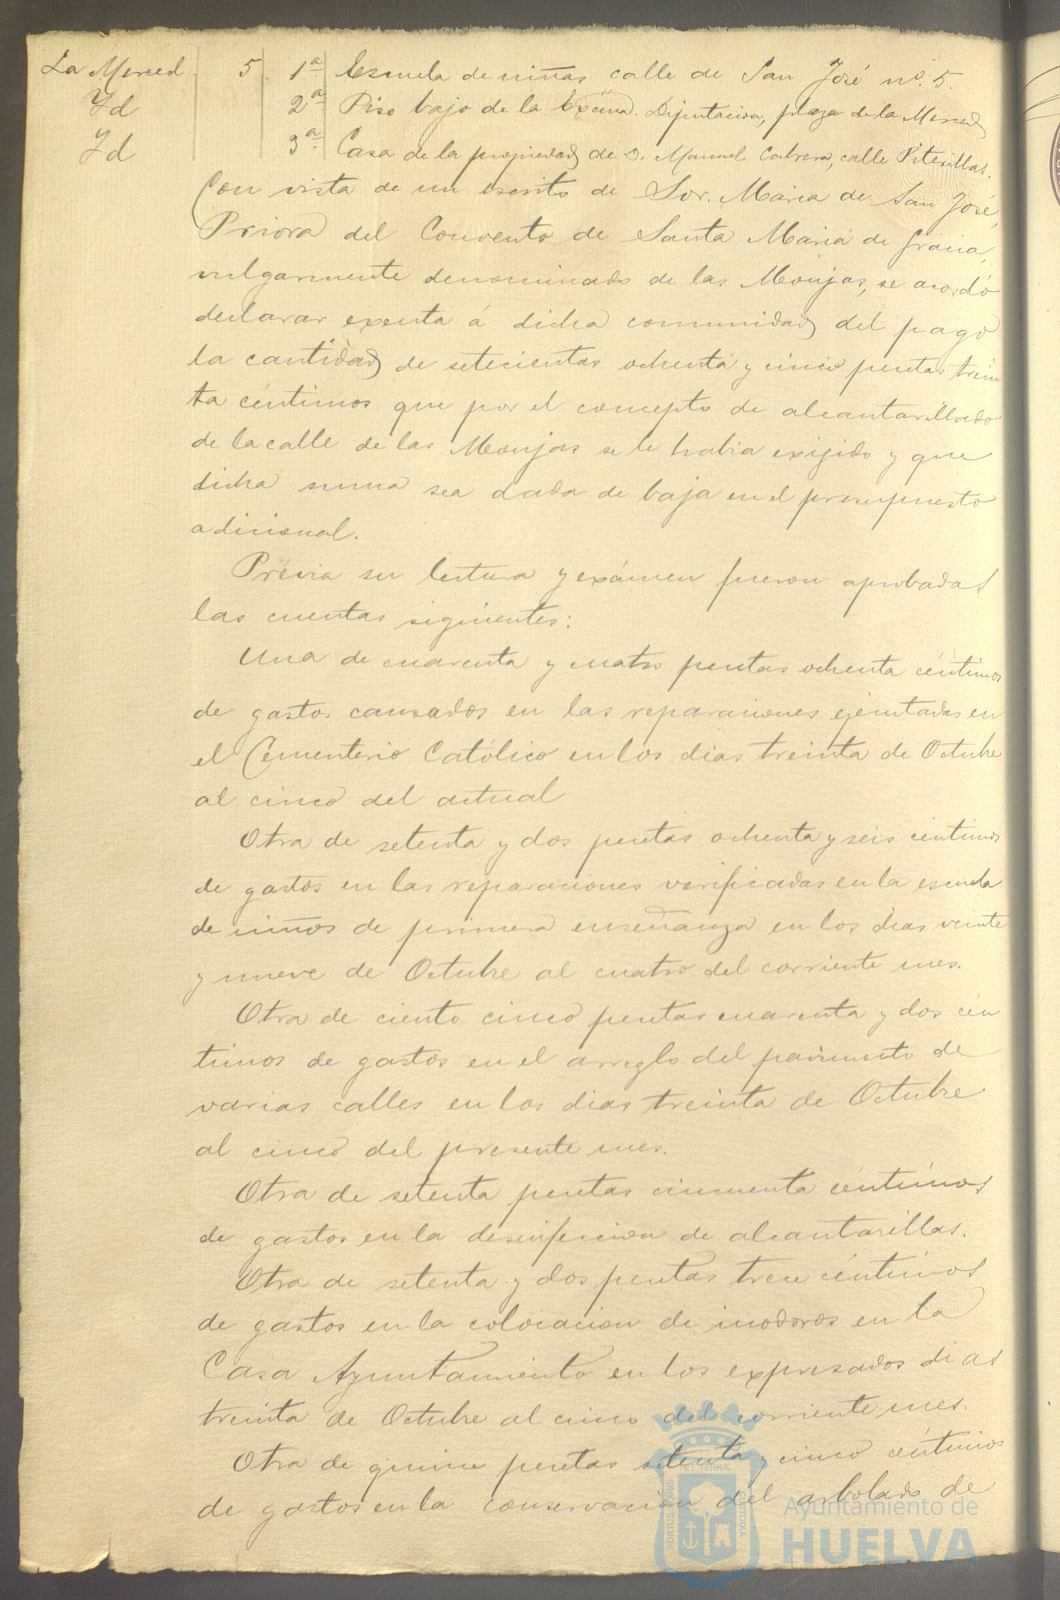 La Merced 5 1ª Escuela de niñas calle de San José nº. 5.
Id 2ª Piso bajo de la Excma. Diputacion, plaza de la Merced
Id 3ª Casa de la propiedad de D. Manuel Cabrera, calle Piterillas.
Con vista de un escrito de Sor. Maria de San José,
Priora del Convento de Santa Maria de Gracia,
vulgarmente denominado de las Monjas, se acordó
declarar exenta á dicha comunidad del pago
la cantidad de setecientas ochenta y cinco pesetas trein
ta céntimos que por el concepto de alcantarillado
de la calle de las Monjas se le habia exigido y que
dicha suma sea dada de baja en el presupuesto
adicional.
Prévia su lectura y exámen fueron aprobadas
las cuentas siguientes:
Una de cuarenta y cuatro pesetas ochenta céntimos
de gastos causados en las reparaciones ejecutadas en
el Cementerio Católico en los dias treinta de Octubre
al cinco del actual
Otra de setenta y dos pesetas ochenta y seis céntimos
de gastos en las reparaciones verificadas en la escuela
de niños de primera enseñanza en los dias veinte
y nueve de Octubre al cuatro del corriente mes.
Otra de ciento cinco pesetas cuarenta y dos cén
timos de gastos en el arreglo del pavimento de
varias calles en los dias treinta de Octubre
al cinco del presente mes.
Otra de setenta pesetas cincuenta céntimos
de gastos en la desinfeccion de alcantarillas.
Otra de setenta y dos pesetas trece céntimos
de gastos en la colocacion de inodoros en la
Casa Ayuntamiento en los expresados dias
treinta de Octubre al cinco del corriente mes.
Otra de quince pesetas setenta y cinco céntimos
de gastos en la conservacion del arbolado de
Ayuntamiento de
HUELVA